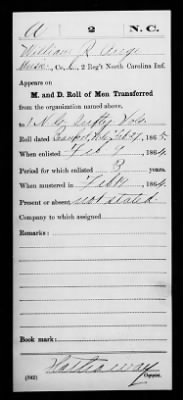 A 2 N.C.
William R Ange
, Co. , 2 Reg't North Carolina Inf.
Appears on
M. and D. Roll of Men Transferred
from the organization named above,
to 1 N.C. Vols.
Roll dated , 1865
When enlisted Feb 9, 1864.
Period for which enlisted 3 years.
When mustered in Feb , 1864.
Present or absent, not stated
Company to which assigned
Remarks:
Book mark:
Hathaway
(342) Copyist.